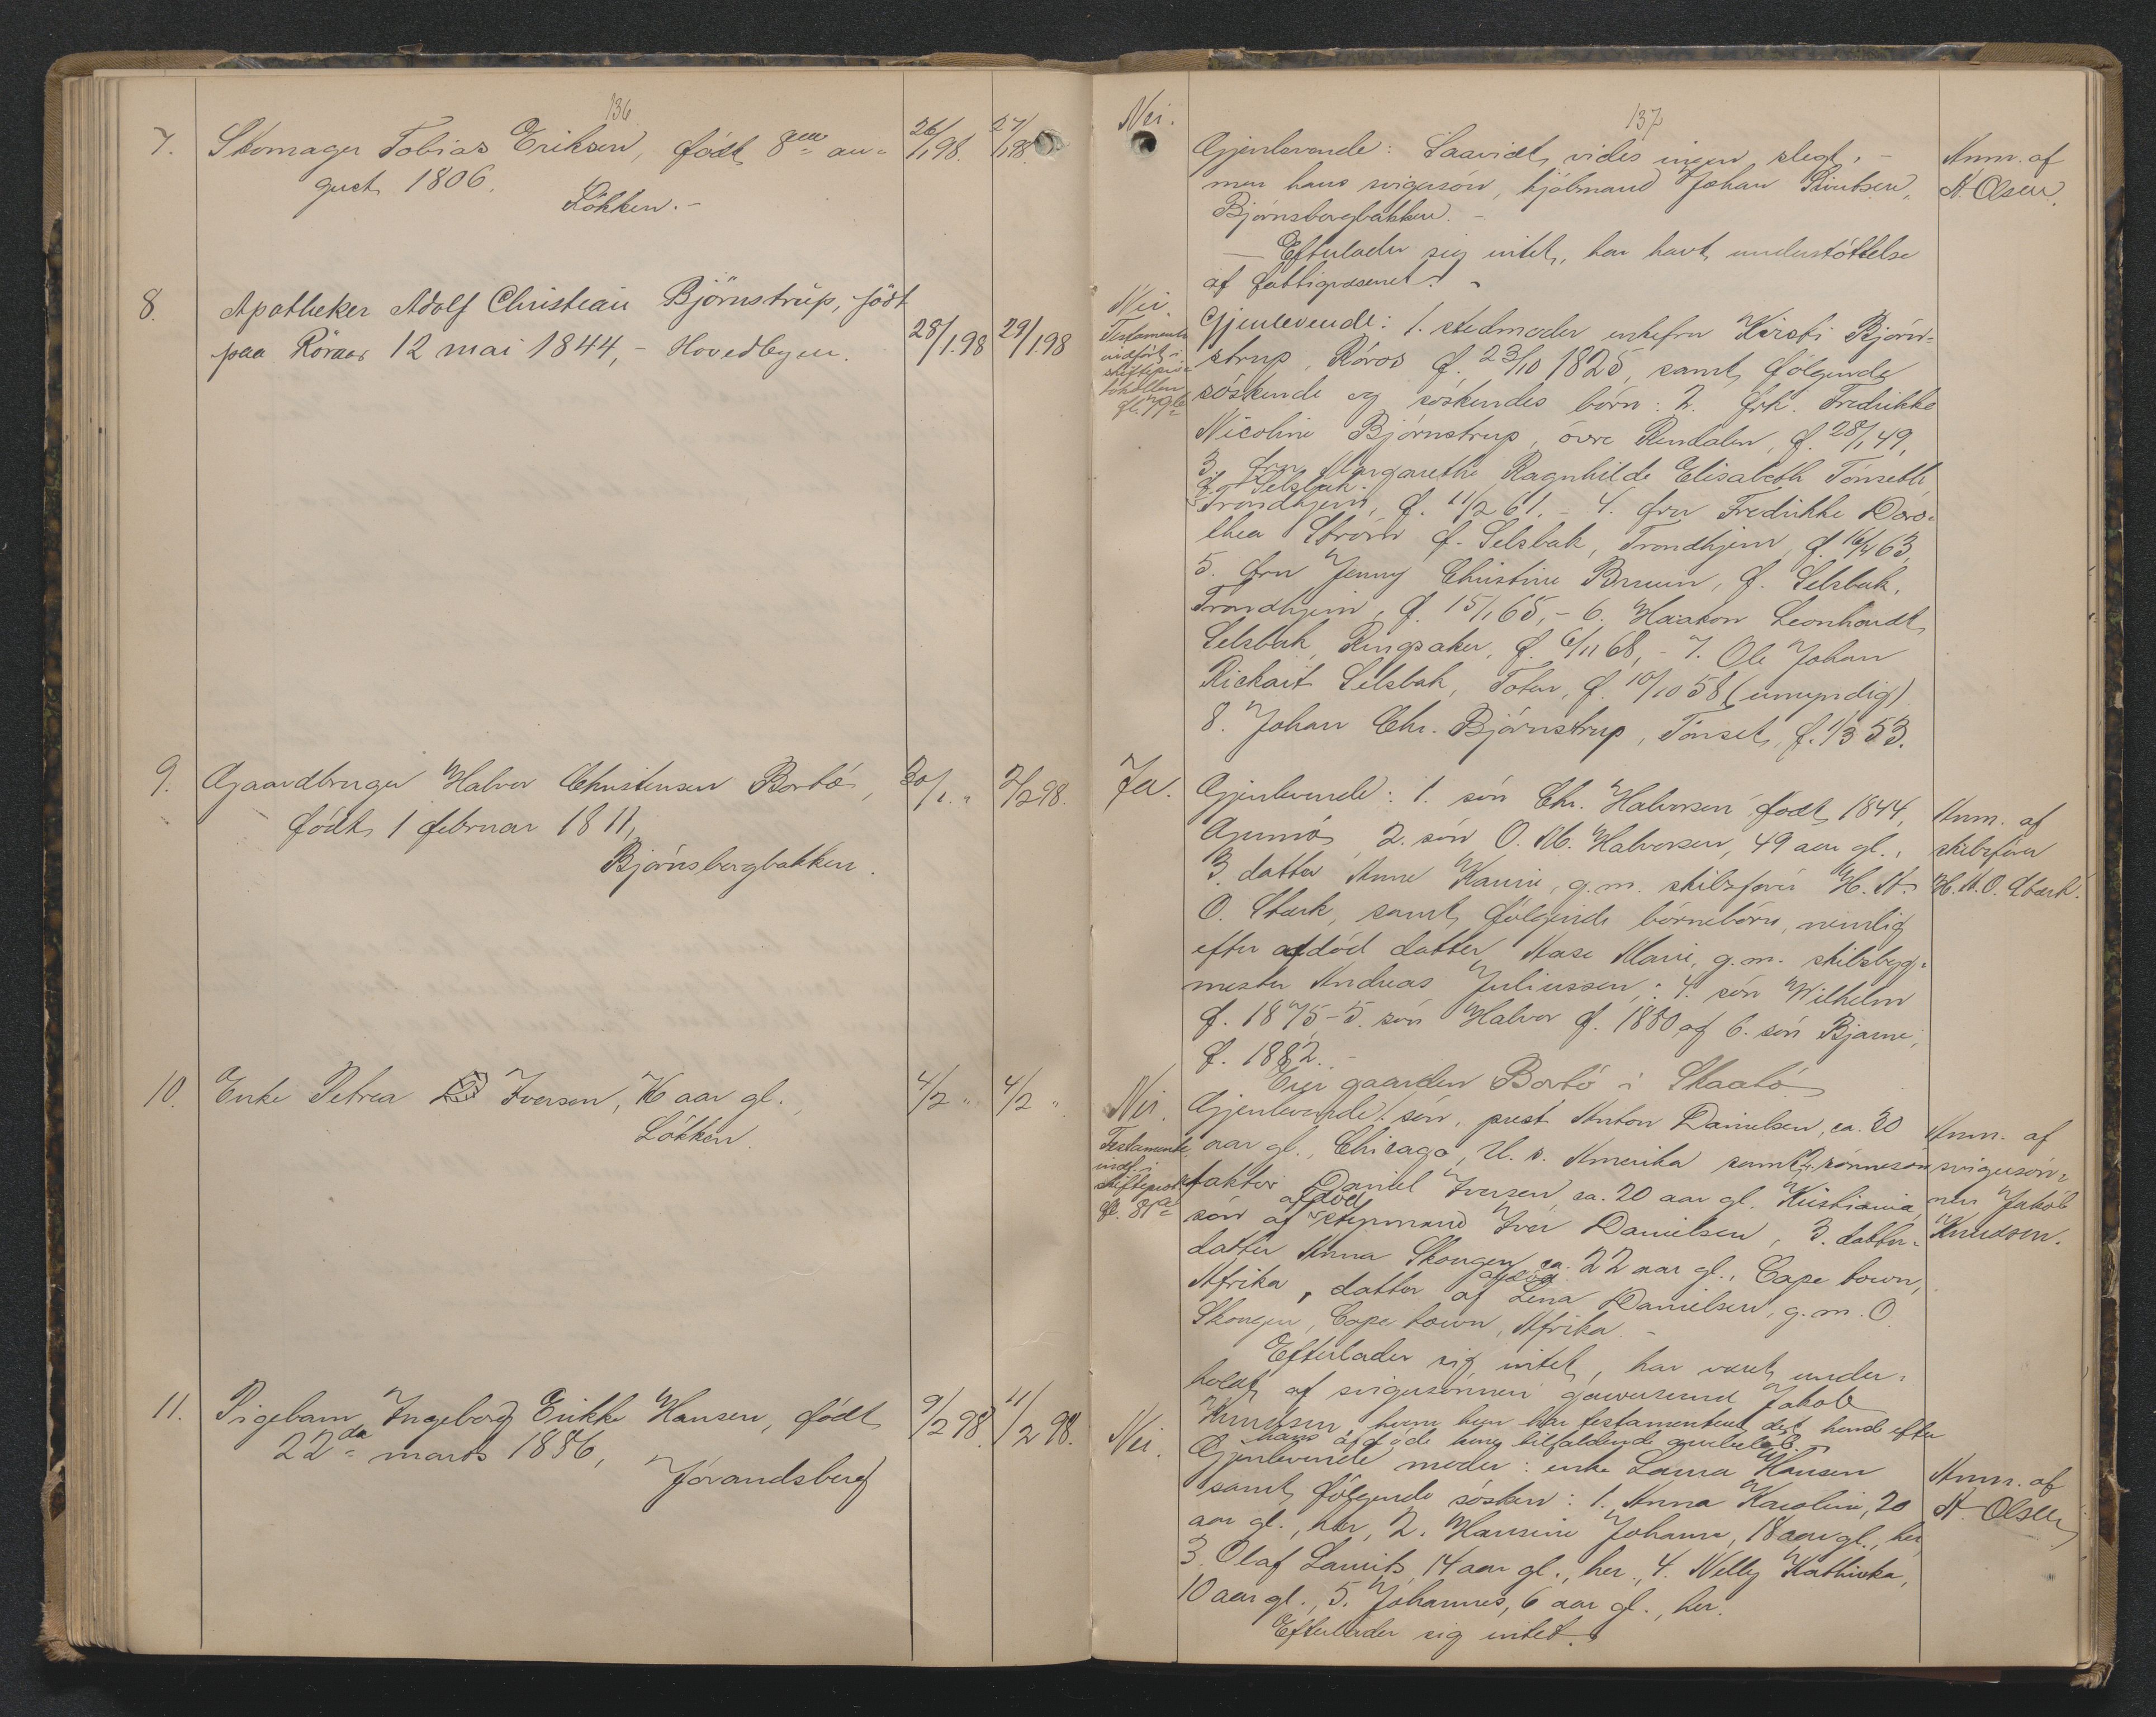 136
7. Skomager Tobias Eriksen, født 8de au-
gust 1806.
Løkken.-
26/1 98. 27/1 98.
8. Apotheker Adolf Christian Björnstrup, født
paa Röraas 12 mai 1844, - Hovedbyen.
28/1.98 29/1.98
9. Gaardbruger Halvor Christensen Borbø,
født 1 februar 1811,
Bjørnsbergbakken.
30/1. " 2/2 98.
10. Enke Petrea Iversen, aar gl.
Løkken.
4/2 " 4/2 "
11. Pigebarn Ingeborg Erikke Hansen, født
22de marts 1886,
Jørandsberg
9/2 98. 11/2 98.
137
Nei.
Gjenlevende: Saavidt vides ingen slegt, -
men hans svigersøn, hjólmand Johan Knutsen,
Bjørnsbergbakken. -
- Efterlader sig intet, har havt understøttelse
af fattigvæsenet. -
Anm. af
A. Olsen.
Nei.
Testamente
indført i
skifteproto-
kollen
fl. 79b
Gjenlevende: 1. stedmoder enkefru Kirsti Bjørn-
strup, Røros f. 23/10 1825, samt følgende
søskende og søskendes børn: 2. frk. Fredrikke
Nicoline Bjørnstrup, øvre Rendalen, f. 28/1 49,
3. fru Margarethe Ragnhilde Elisabeth Tønseth
f. Selsbak.
Trondhjem, f. 11/2 61. - 4. fru Fredrikke Doro-
thea Strøm f. Selsbak, Trondhjem, f. 16/4 63,
5. fru Jenny Christine Bruun, f. Selsbak,
Trondhjem, f. 15/1 65, - 6. Haakon Leonhardt
Selsbak, Ringsaker, f. 6/11 68, - 7. Ole Johan
Richart Selsbak, Toten, f. 10/10 58 (umyndig)
8. Johan Chr. Bjørnstrup, Tønset, f. 1/3 53.
Ja.
Gjenlevende: 1. søn Chr. Halvorsen født 1844,
2. søn O. M. Halvorsen, 49 aar gl.,
3. datter Anne Karine, g.m. skibsfører H. A.
O. Stærk, samt følgende børnebørn, nemlig
efter afdød datter Aase Marie, g.m. skibsbyg-
mester Andreas Juliussen,: 4. søn Wilhelm
f. 1875 - 5. søn Halvor f. 1880 og 6. søn Bjarne,
f. 1882. -
Eier gaarden Borbø i Skaatø
Anm. af
skibsfører
H. A. O. Stærk.
Nei.
Testamente
indf. i
skifteprot.
fl. 81a
Gjenlevende: søn, prest Anton Danielsen, ca. 30
aar gl., Chicago, U. S. Amerika samt 2. sønnesøn
faktor Daniel Iversen, ca. 20 aar gl. Kristiania,
afdød
søn af styrmand Iver Danielsen, 3. datter-
datter Anna Skougen ca. 22 aar gl., Cape town,
afdød
Afrika, datter af Lena Danielsen, g.m. O.
Skougen, Cape town, Afrika. -
Efterlader sig intet, har været under-
holdt af svigersønnen Jakob
Knudsen, hvem hun har testamenteret det hende efter
hans afdøde tilfaldende
Anm. af
svigersøn-
nen Jakob
Knudsen.
Nei.
Gjenlevende moder: enke Laura Hansen
samt følgende søsken: 1. Anna Karoline, 20
aar gl., her, 2. Hansine Johanne, 18 aar gl., her
3. Olaf Laurits, 14 aar gl., her, 4. Nelly Kathinka,
10 aar gl., 5. Johannes, 6 aar gl., her.
Efterlader sig intet.
Anm. af
A. Olsen